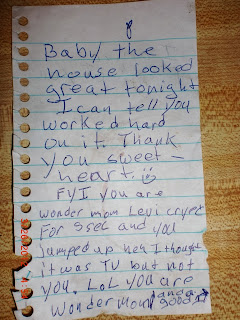 Baby the
house looked
great tonight
I can tell you
worked hard
on it. Thank
you sweet-
heart.
FYI you are
wonder mom Levi cryed
for 5sec and you
jumped up heh I thought
it was TV but not
you. LOL you are
Wonder mom! and a
good